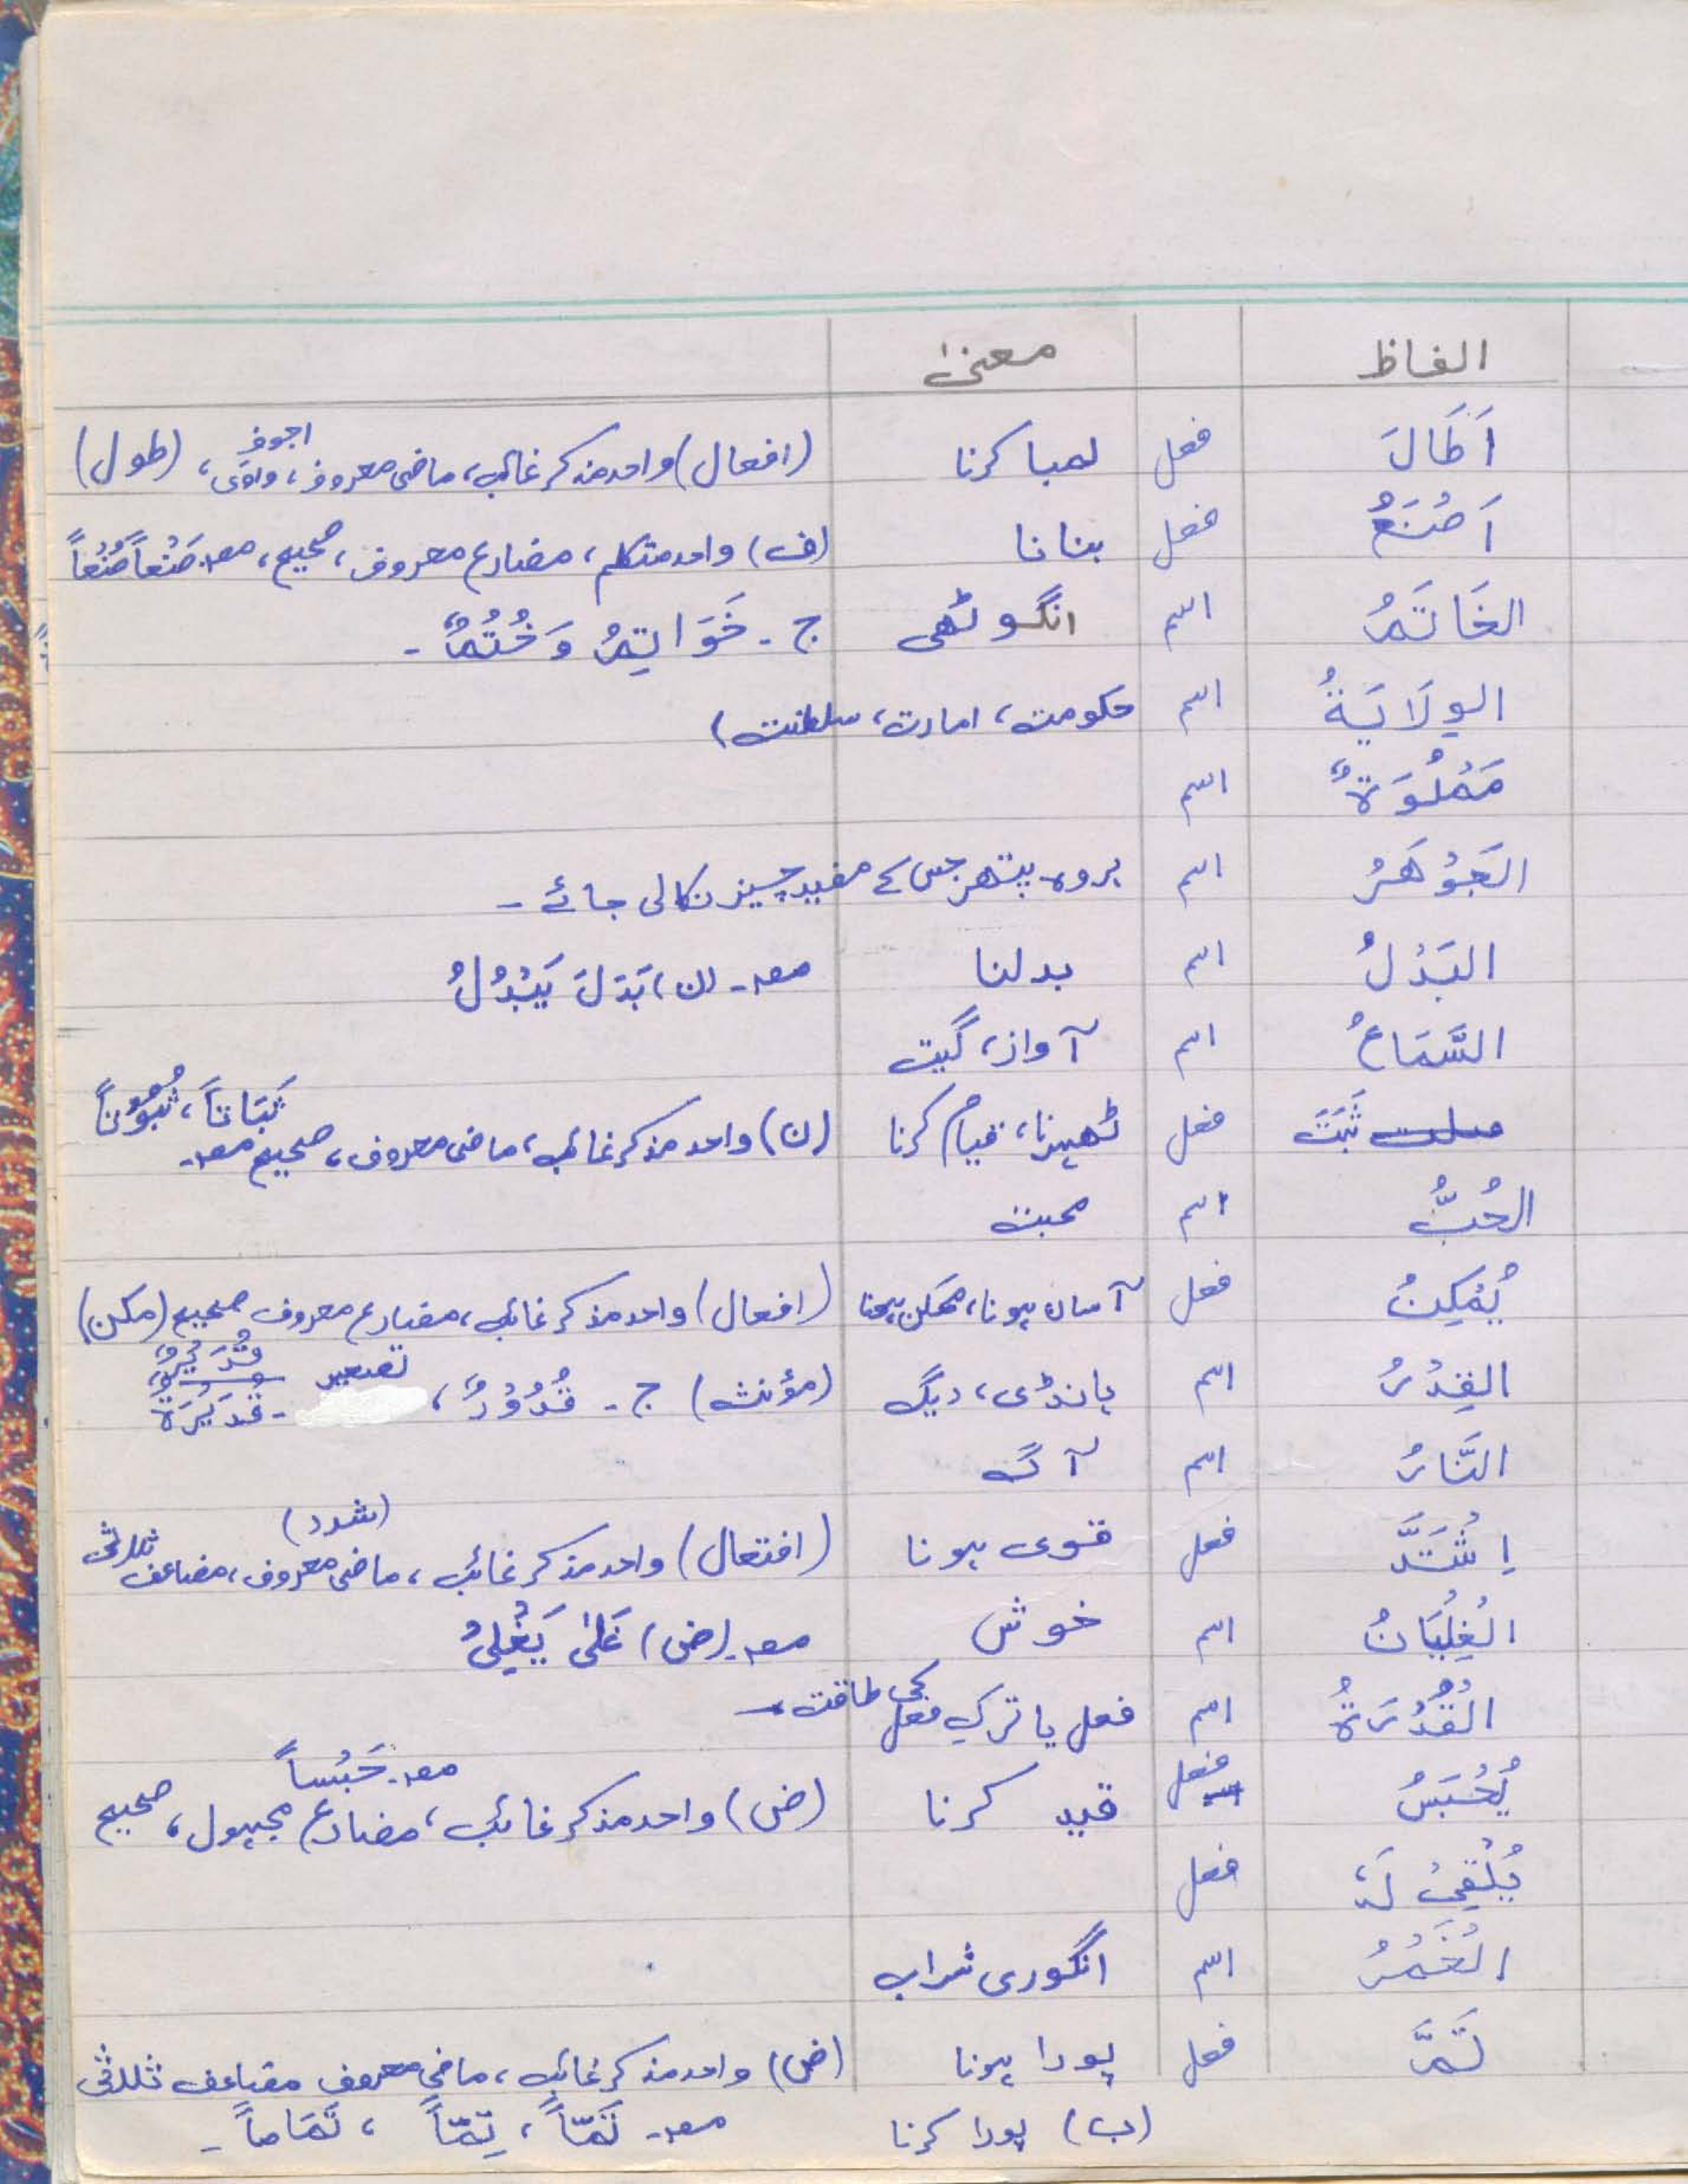 الفاظ معنیٰ
اَطَالَ فعل لمبا کرنا (افعال) واحد مذکر غائب، ماضی معروف، اجوف واوی، (طول)
اَصْنَعُ فعل بنانا (ف) واحد متکلم، مضارع معروف، صحیح، مصـ صَنْعاً صُنْعاً
الخَاتَمُ اسم انگوٹھی ج۔ خَوَاتِمُ وَ خُتُمٌ ۔
الوِلَايَةُ اسم حکومت، امارت، سلطنت)
مَمْلُوَةٌ اسم
الجَوْهَرُ اسم ہر وہ پتھر جس کے مفید چیز نکالی جائے ۔
البَدْلُ اسم بدلنا مصـ۔ (ن) بَدَلَ يَبْدُلُ
السَّمَاعُ اسم آواز، گیت
ثَبَتَ فعل ٹھہرنا، قیام کرنا (ن) واحد مذکر غائب، ماضی معروف، صحیح مصـ۔ ثَبَاتاً، ثُبُوْتاً
الحُبُّ اسم محبت
يُمْكِنُ فعل آسان ہونا، ممکن ہونا (افعال) واحد مذکر غائب، مضارع معروف صحیح (مکن)
القِدْرُ اسم ہانڈی، دیگ (مؤنث) ج۔ قُدُوْرٌ، تصغیر قُدَيْرٌ ۔ قُدَيْرَةٌ
النَّارُ اسم آگ
اِشْتَدَّ فعل قوی ہونا (افتعال) واحد مذکر غائب، ماضی معروف، مضاعف ثلاثی (شدد)
الْغِلْيَانُ اسم خوش مصـ۔ (ض) غَلىٰ يَغْلِىُ
الْقُدْرَةُ اسم فعل یا ترکِ فعل کی طاقت ۔
يُحْبَسُ فعل قید کرنا (ض) واحد مذکر غائب، مضارع مجہول، صحیح مصـ۔ حَبْساً
يُلْقِىْ لَهٗ فعل
الْخَمْرُ اسم انگوری شراب
تَمَّ فعل پورا ہونا (ض) واحد مذکر غائب، ماضی معروف مضاعف ثلاثی
(ب) پورا کرنا مصـ۔ تَمّاً، تِمّاً، تَمَاماً ۔